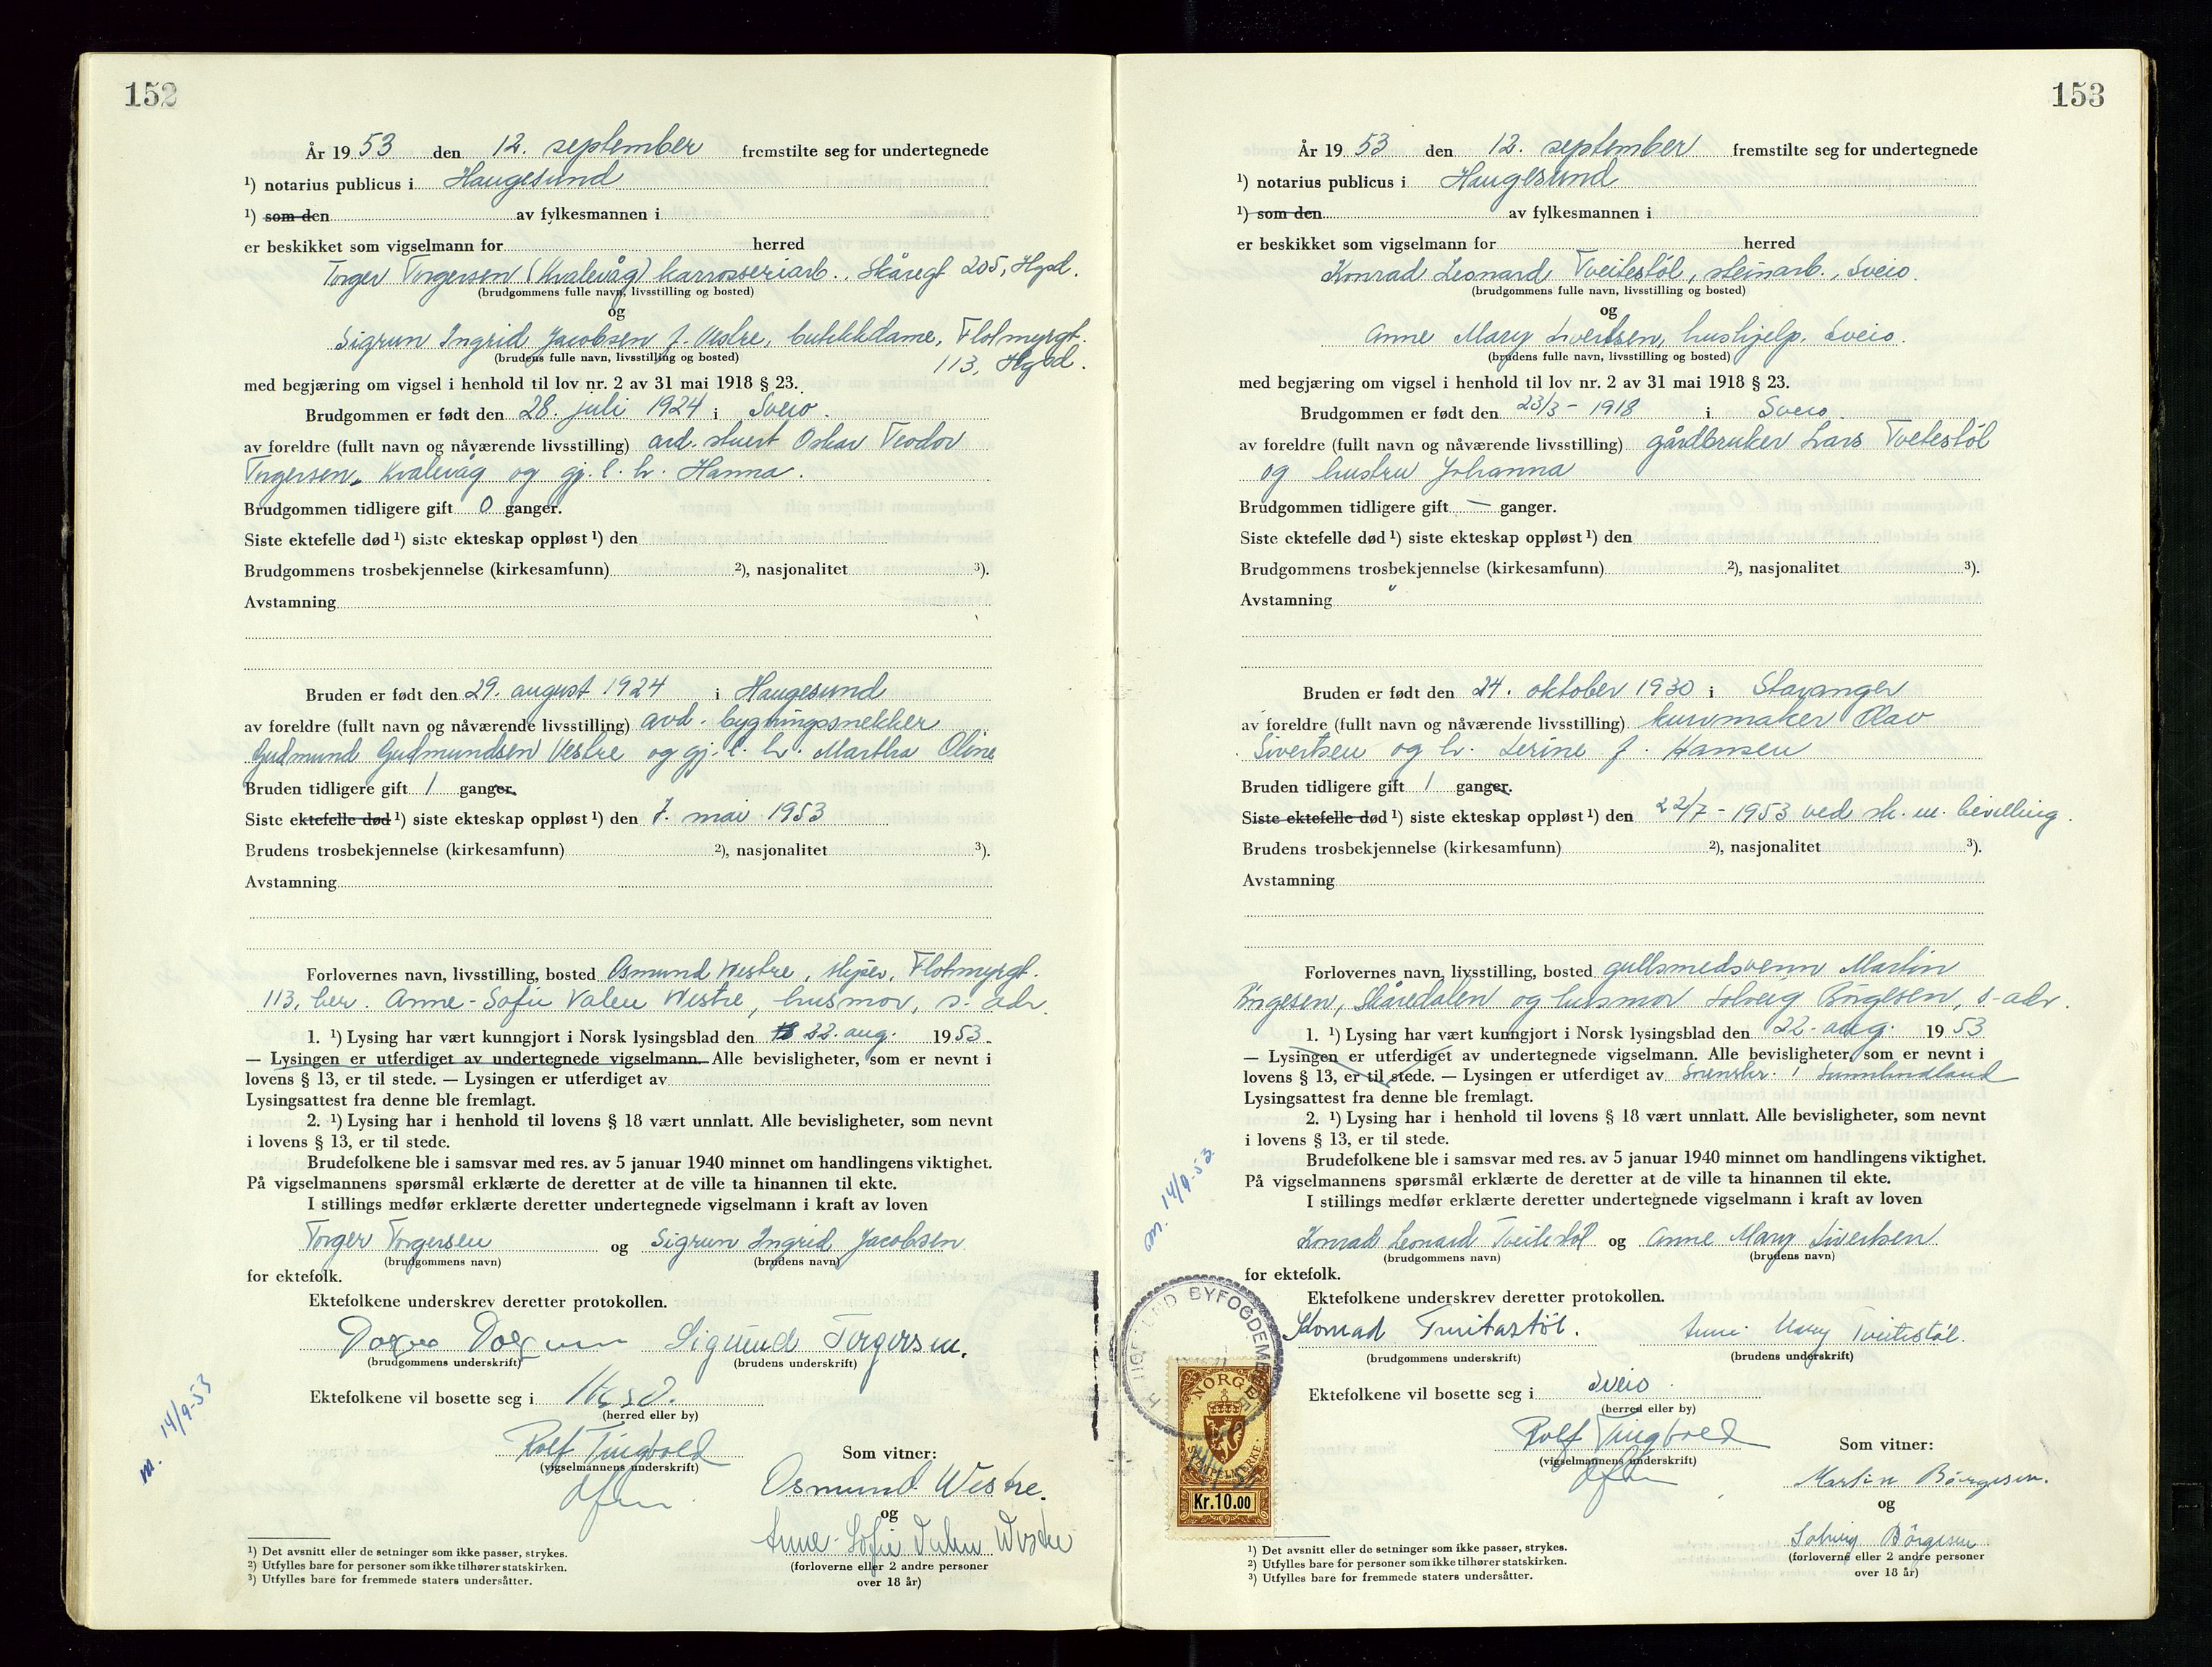 152
År 1953 den 12. september fremstilte seg for undertegnede
¹) notarius publicus i Haugesund
¹) som den av fylkesmannen i
er beskikket som vigselmann for herred
Torger Torgersen (Kvalevåg) karrosseriarb., Skåregt 205, Hgsd.
(brudgommens fulle navn, livsstilling og bosted)
og
Sigrun Ingrid Jacobsen f. Vestre, butikkdame, Flotmyrgt.
(brudens fulle navn, livsstilling og bosted) 113, Hgsd.
med begjæring om vigsel i henhold til lov nr. 2 av 31 mai 1918 § 23.
Brudgommen er født den 28. juli 1924 i Sveio.
av foreldre (fullt navn og nåværende livsstilling) avd. stuert Oskar Teodor
Torgersen, Kvalevåg og gj. l. h. Hanna.
Brudgommen tidligere gift 0 ganger.
Siste ektefelle død ¹) siste ekteskap oppløst ¹) den
Brudgommens trosbekjennelse (kirkesamfunn) ²), nasjonalitet ³).
Avstamning
Bruden er født den 29. august 1924 i Haugesund
av foreldre (fullt navn og nåværende livsstilling) avd. bygningssnekker
Gudmund Gudmundsen Vestre og gj. l. h. Martha Oline
Bruden tidligere gift 1 ganger.
Siste ektefelle død ¹) siste ekteskap oppløst ¹) den 7. mai 1953
Brudens trosbekjennelse (kirkesamfunn) ²), nasjonalitet ³).
Avstamning
Forlovernes navn, livsstilling, bosted Osmund Westre, Flotmyrgt.
113, her. Anne-Sofie Valen Westre, husmor, s. adr.
1. ¹) Lysing har vært kunngjort i Norsk lysingsblad den 22. aug. 1953.
— Lysingen er utferdiget av undertegnede vigselmann. Alle bevisligheter, som er nevnt i
lovens § 13, er til stede. — Lysingen er utferdiget av
Lysingsattest fra denne ble fremlagt.
2. ¹) Lysing har i henhold til lovens § 18 vært unnlatt. Alle bevisligheter, som nevnt
i lovens § 13, er til stede.
Brudefolkene ble i samsvar med res. av 5 januar 1940 minnet om handlingens viktighet.
På vigselmannens spørsmål erklærte de deretter at de ville ta hinannen til ekte.
I stillings medfør erklærte deretter undertegnede vigselmann i kraft av loven
Torger Torgersen og Sigrun Ingrid Jacobsen
(brudgommens navn) (brudens navn)
for ektefolk.
Ektefolkene underskrev deretter protokollen.
Sigrund Torgersen.
(brudgommens underskrift) (brudens underskrift)
Ektefolkene vil bosette seg i Hgsd.
(herred eller by)
m. 14/9-53
Rolf Tingvold Som vitner:
(vigselmannens underskrift)
Osmund Westre.
og
Anne-Sofie Valen Westre
(forloverne eller 2 andre personer
over 18 år)
¹) Det avsnitt eller de setninger som ikke passer, strykes.
²) Utfylles bare for personer som ikke tilhører statskirken.
³) Utfylles bare for fremmede staters undersåtter.
153
År 1953 den 12. september fremstilte seg for undertegnede
¹) notarius publicus i Haugesund
¹) som den av fylkesmannen i
er beskikket som vigselmann for herred
Konrad Leonard Tveitestøl, steinarb., Sveio.
(brudgommens fulle navn, livsstilling og bosted)
og
Anne Mary Sivertsen, hushjelp, Sveio.
(brudens fulle navn, livsstilling og bosted)
med begjæring om vigsel i henhold til lov nr. 2 av 31 mai 1918 § 23.
Brudgommen er født den 23/3 - 1918 i Sveio
av foreldre (fullt navn og nåværende livsstilling) gårdbruker Lars Tveitestøl
og hustru Johanna
Brudgommen tidligere gift — ganger.
Siste ektefelle død ¹) siste ekteskap oppløst ¹) den
Brudgommens trosbekjennelse (kirkesamfunn) ²), nasjonalitet ³).
Avstamning
Bruden er født den 24. oktober 1930 i Stavanger
av foreldre (fullt navn og nåværende livsstilling) kurvmaker Olav
Sivertsen og h. Serine f. Hansen
Bruden tidligere gift 1 ganger.
Siste ektefelle død ¹) siste ekteskap oppløst ¹) den 22/7 - 1953 ved sk. m. bevilling.
Brudens trosbekjennelse (kirkesamfunn) ²), nasjonalitet ³).
Avstamning
Forlovernes navn, livsstilling, bosted gullsmedsvenn Martin
Börgesen, Skåredalen og husmor Solveig Börgesen, s. adr.
1. ¹) Lysing har vært kunngjort i Norsk lysingsblad den 22. aug. 1953
— Lysingen er utferdiget av undertegnede vigselmann. Alle bevisligheter, som er nevnt i
lovens § 13, er til stede. — Lysingen er utferdiget av Sorenskr. i Sunnhordland
Lysingsattest fra denne ble fremlagt.
2. ¹) Lysing har i henhold til lovens § 18 vært unnlatt. Alle bevisligheter, som nevnt
i lovens § 13, er til stede.
Brudefolkene ble i samsvar med res. av 5 januar 1940 minnet om handlingens viktighet.
På vigselmannens spørsmål erklærte de deretter at de ville ta hinannen til ekte.
I stillings medfør erklærte deretter undertegnede vigselmann i kraft av loven
m. 14/9-53
Konrad Leonard Tveitestøl og Anne Mary Sivertsen
(brudgommens navn) (brudens navn)
for ektefolk.
Ektefolkene underskrev deretter protokollen.
Konrad Tveitestøl. Anne Mary Tveitestøl.
(brudgommens underskrift) (brudens underskrift)
Ektefolkene vil bosette seg i Sveio.
(herred eller by)
Rolf Tingvold Som vitner:
(vigselmannens underskrift)
Martin Börgesen.
og
Solveig Börgesen
(forloverne eller 2 andre personer
over 18 år)
BYFOGDEM
NORGE
Kr.10.00
¹) Det avsnitt eller de setninger som ikke passer, strykes.
²) Utfylles bare for personer som ikke tilhører statskirken.
³) Utfylles bare for fremmede staters undersåtter.